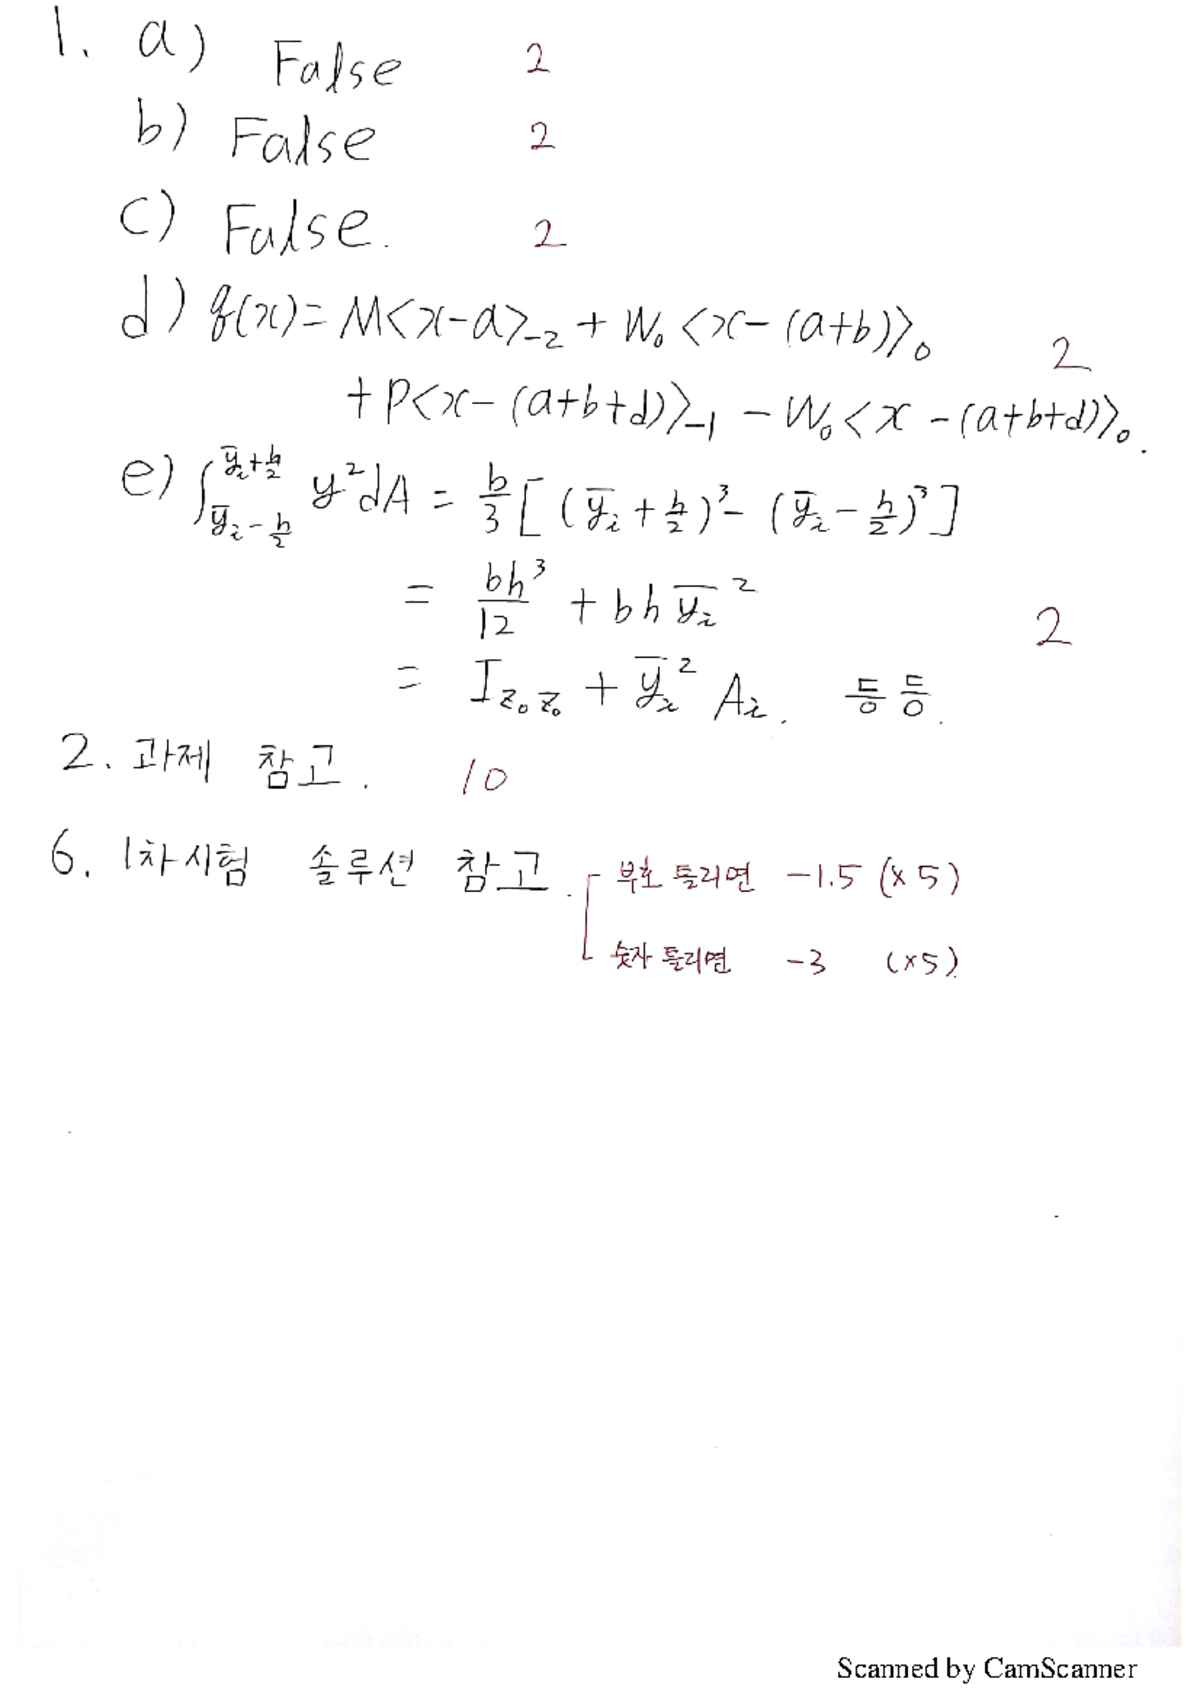 1. a) False 2
b) False 2
c) False. 2
d) q(x) = M<x-a>₋₂ + W₀<x-(a+b)>₀ 2
+ P<x-(a+b+d)>₋₁ - W₀<x-(a+b+d)>₀.
e) ∫_{ȳᵢ-h/2}^{ȳᵢ+h/2} y²dA = b/3 [(ȳᵢ+h/2)³ - (ȳᵢ-h/2)³]
= bh³/12 + bhȳᵢ² 2
= I_{z₀z₀} + ȳᵢ²Aᵢ. 등등.
2. 과제 참고. 10
6. 1차시험 솔루션 참고. 부호 틀리면 -1.5 (×5)
숫자 틀리면 -3 (×5)
Scanned by CamScanner